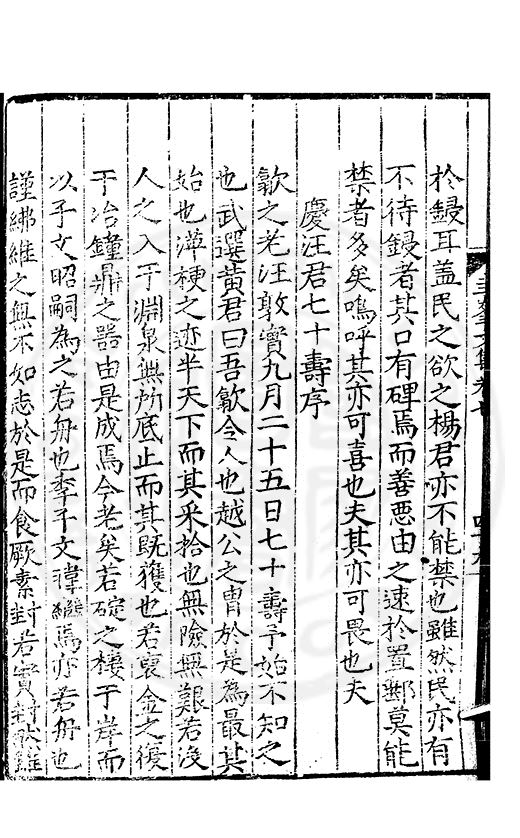 於鋟耳盖民之欲之楊君亦不能禁也雖然民亦有
不待鋟者其口有碑焉而善惡由之速於置郵莫能
禁者多矣嗚呼其亦可喜也夫其亦可畏也夫
慶汪君七十壽序
歙之老汪敦實九月二十五日七十壽予始不知之
也武選黄君曰吾歙令人也越公之胄於是為最其
始也萍梗之迹半天下而其采拾也無險無艱若没
人之入于淵泉無所底止而其既獲也若裒金之復
于冶鐘鼎之器由是成焉今老矣若碇之棲于岸而
以子文昭嗣為之若舟也季子文 繼焉亦若舟也
謹綍維之無不如志於是而食厥素封若實封然雖
文集卷七